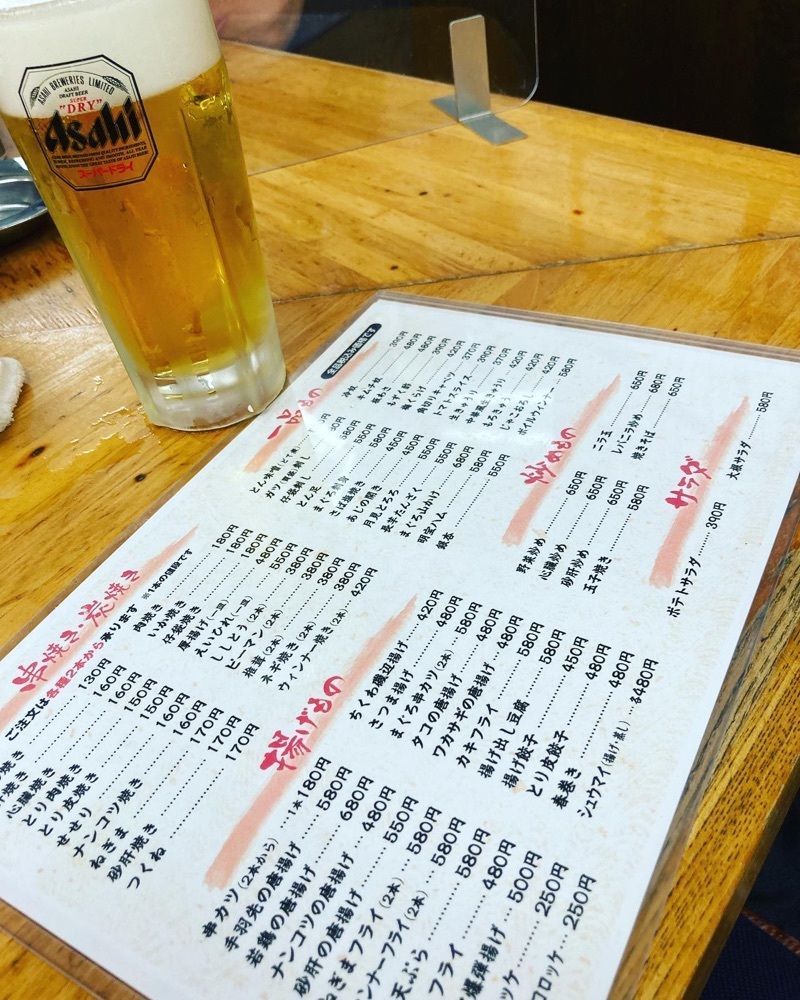 ASAHI BREWERIES LIMITED
ASAHI
DRAFT BEER
SUPER
"DRY"
Asahi
スーパードライ
全品税込み価格です
一品もの
冷奴 390円
キムチ奴 480円
板わさ 480円
もずく酢 390円
梅くらげ 420円
角切りキャベツ 370円
トマトスライス 390円
生きゅうり 370円
中華風圧玉きゅうり 420円
もろきゅう 420円
じゃこおろし 420円
ボイルウィンナー 580円
仔袋刺し 580円
とん足 450円
さば塩焼き 450円
あじの開き 450円
月見とろろ 550円
長芋たんざく 550円
まぐろ山かけ 680円
明宝ハム 580円
銀杏 550円
炒めもの
ニラ玉 650円
レバニラ炒め 680円
焼きそば 650円
野菜炒め 650円
心臓炒め 650円
砂肝炒め 650円
玉子焼き 580円
サラダ
大根サラダ 580円
ポテトサラダ 390円
串焼き・炭焼き
※1本の値段です
ご注文は各種2本から承ります
肉焼き 180円
いか焼き 180円
仔袋焼き 180円
厚揚げ(一皿) 480円
えいひれ(一皿) 550円
ししとう(2本) 380円
ピーマン(2本) 380円
椎茸(2本) 380円
ネギ焼き(2本) 380円
ウィンナー焼き(2本) 420円
130円
160円
心臓焼き 160円
とり肉焼き 150円
とり皮焼き 150円
せせり 160円
ナンコツ焼き 160円
ねぎま 170円
砂肝焼き 170円
つくね 170円
揚げもの
ちくわ磯辺揚げ 420円
さつま揚げ 480円
まぐろ串カツ(2本) 580円
タコの唐揚げ 480円
ワカサギの唐揚げ 480円
カキフライ 580円
揚げ出し豆腐 580円
揚げ餃子 450円
とり皮餃子 480円
春巻き 480円
シュウマイ(揚げ・蒸し) 各480円
串カツ(2本から) 1本180円
手羽先の唐揚げ 580円
若鶏の唐揚げ 680円
ナンコツの唐揚げ 480円
砂肝の唐揚げ 550円
ねぎまフライ(2本) 580円
ンナーフライ(2本) 580円
天ぷら 580円
フライ 480円
爆弾揚げ 500円
ロッケ 250円
コロッケ 250円